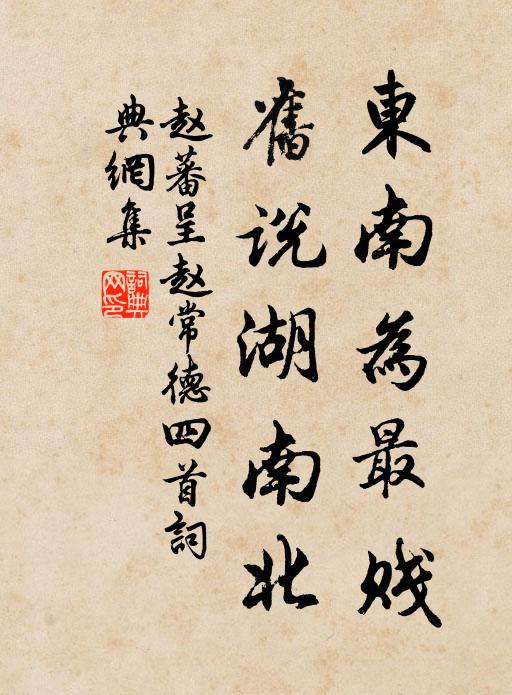 東南為最賤
舊說湖南北
赵蕃呈赵常德四首詞
典網集
詞典网印